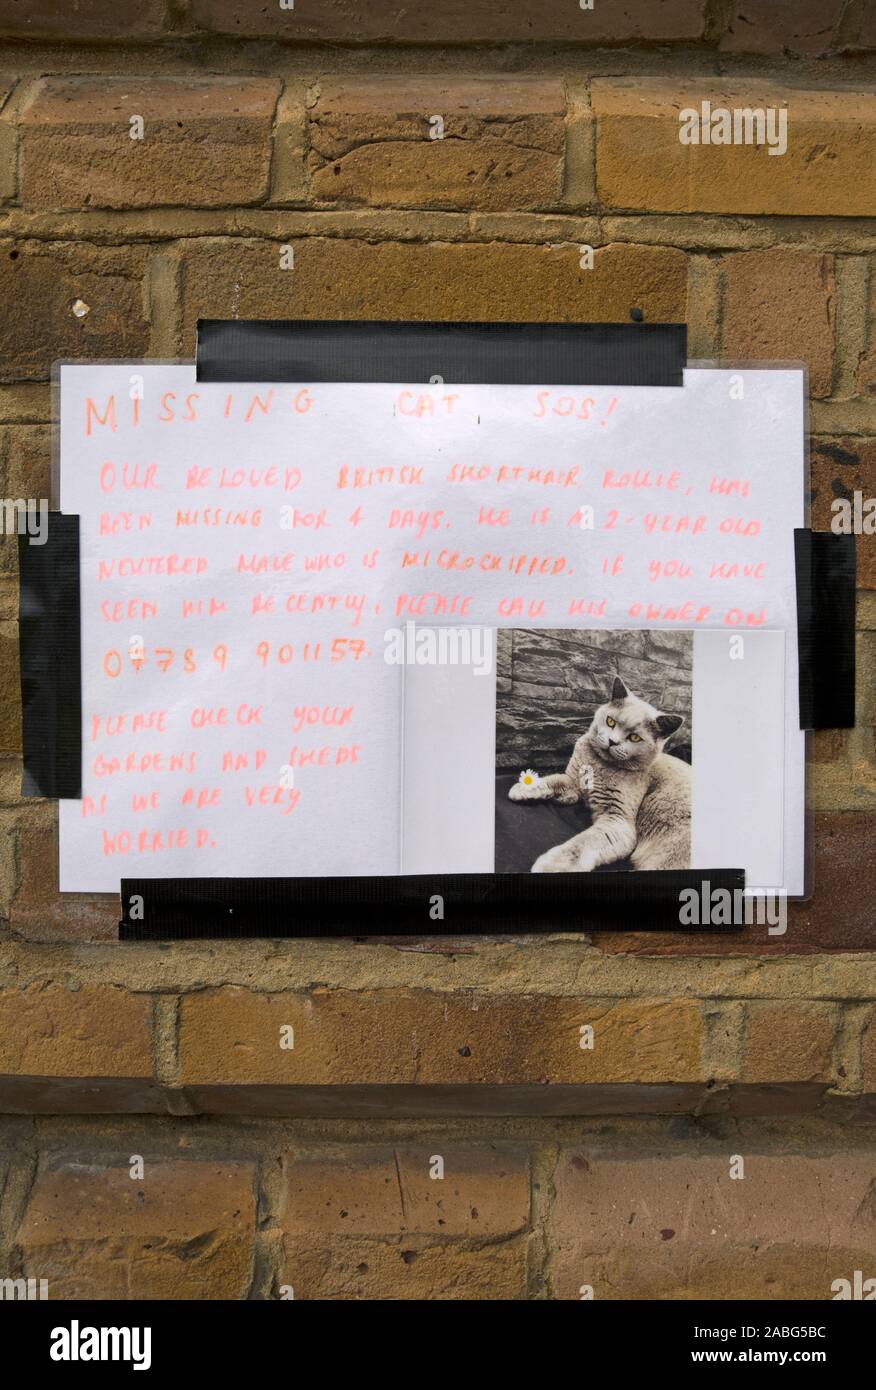 MISSING CAT, SOS!
OUR BELOVED BRITISH SHORTHAIR ROLLIE, HAS
BEEN MISSING FOR 4 DAYS. HE IS A 2-YEAR OLD
NEUTERED MALE WHO IS MICROCHIPPED. IF YOU HAVE
SEEN HIM RECENTLY, PLEASE CALL HIS OWNER ON
07789 901157.
PLEASE CHECK YOUR
GARDENS AND SHEDS
AS WE ARE VERY
WORRIED.
alamy
a
alamy
alamy
Image ID: 2ABG5BC
www.alamy.com